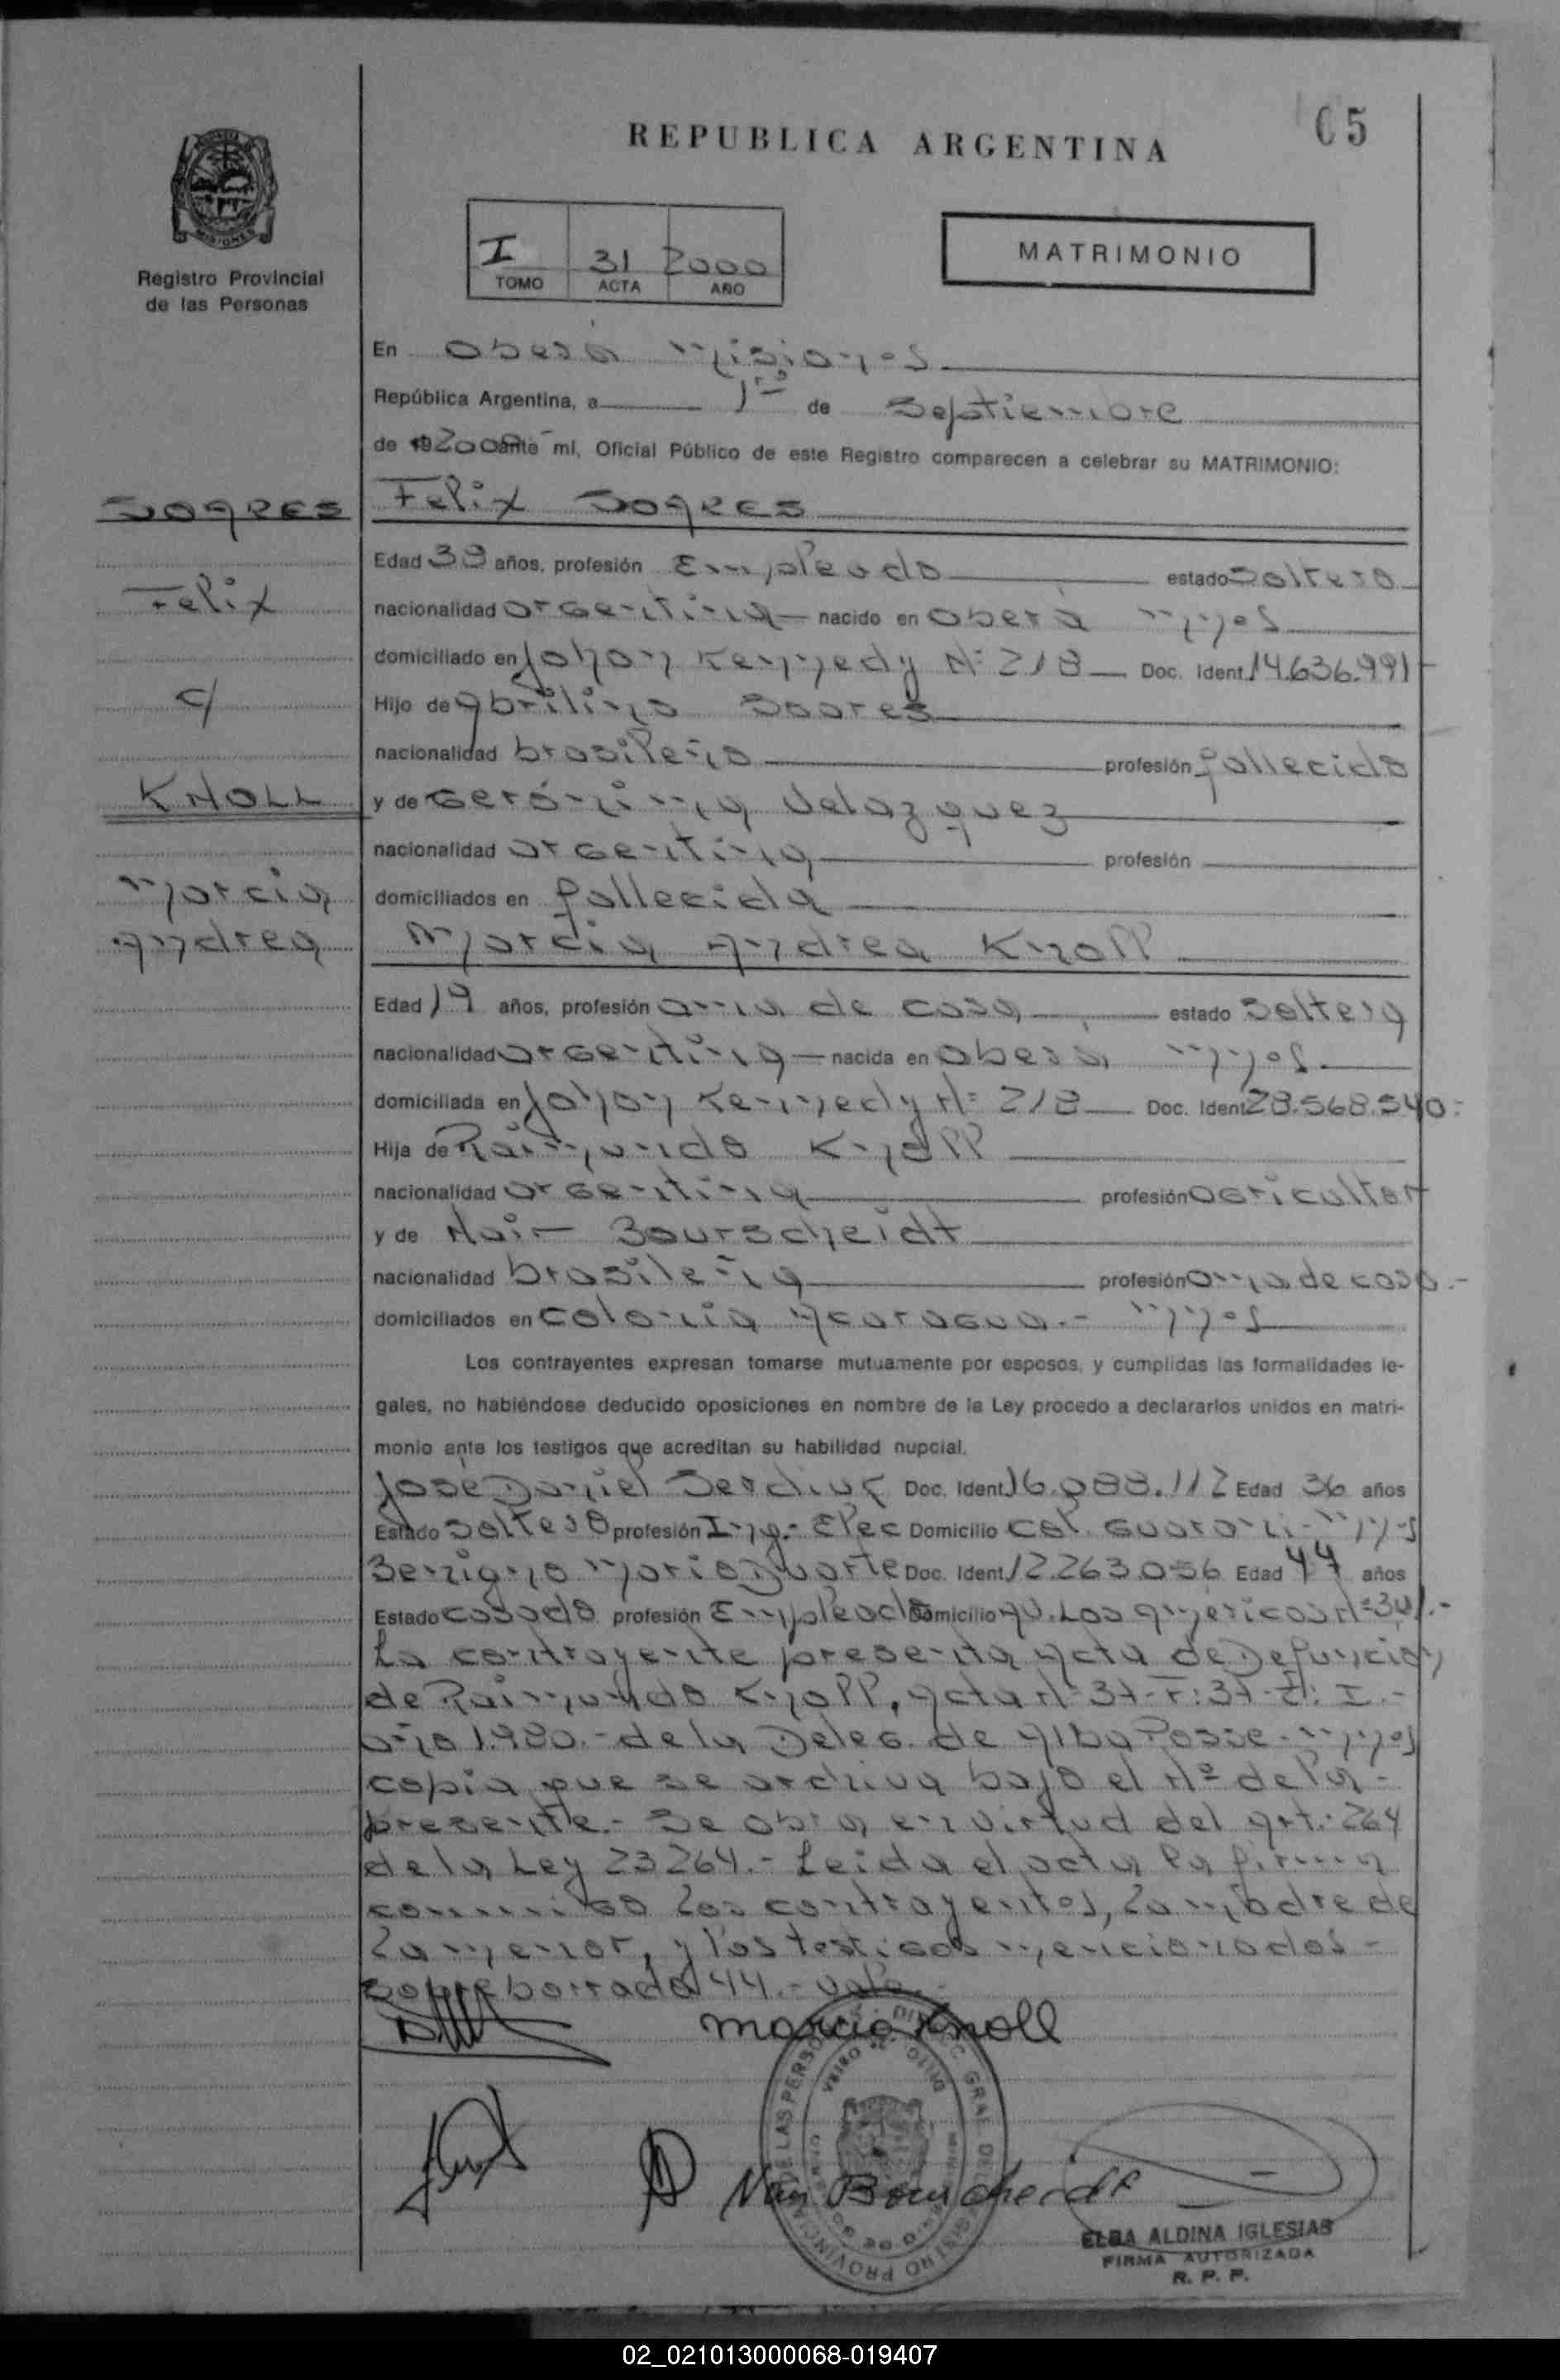 65
REPUBLICA ARGENTINA
MISIONES
Registro Provincial
de las Personas
I 31 2000
TOMO ACTA AÑO
MATRIMONIO
En Oberá Misiones
República Argentina, a 1ro de Septiembre
de 19 2000 ante mí, Oficial Público de este Registro comparecen a celebrar su MATRIMONIO:
SOARES
Felix
c/
KNOLL
Marcia
Andrea
Felix SOARES
Edad 39 años, profesión Empleado estado Soltero
nacionalidad argentina nacido en Oberá Mnes
domiciliado en Johon Kennedy Nº 218 Doc. Ident. 14.636.991
Hijo de Abrilino Soares
nacionalidad brasileño profesión fallecido
y de Gerónima Velazquez
nacionalidad argentina profesión
domiciliados en fallecida
Marcia Andrea Knoll
Edad 19 años, profesión ama de casa estado Soltera
nacionalidad argentina nacida en Oberá Mnes
domiciliada en Johon Kennedy Nº 218 Doc. Ident. 28.568.540.-
Hija de Raimundo Knoll
nacionalidad argentina profesión agricultor
y de Nair Bourscheidt
nacionalidad brasileña profesión ama de casa.-
domiciliados en Colonia Acaragua.- Mnes
Los contrayentes expresan tomarse mutuamente por esposos, y cumplidas las formalidades le-
gales, no habiéndose deducido oposiciones en nombre de la Ley procedo a declararlos unidos en matri-
monio ante los testigos que acreditan su habilidad nupcial.
Jose Daniel Serdiuk Doc. Ident. 16.088.112 Edad 36 años
Estado Soltero profesión Ing.- Elec Domicilio Cal. Guarani-Mnes
Benigno Mario Duarte Doc. Ident. 12.263.056 Edad 44 años
Estado casado profesión Empleado Domicilio Av. Las Americas Nº
La contrayente presenta acta de Defunción
de Raimundo Knoll, acta Nº 37-F:37-T: I.-
año 1.980.- de la Deleg. de Alba Posse - Mnes
copia que se archiva bajo el Nº de la -
presente.- Se obra en virtud del art.- 264
de la Ley 23264.- Leida el acta la firman
conmigo los contrayentes, la madre de
la menor, y los testigos mencionados -
sobreborrado 44.- vale.-
Marcia Knoll
Nair Bourscheidt
ELBA ALDINA IGLESIAS
FIRMA AUTORIZADA
R. P. P.
02_021013000068-019407